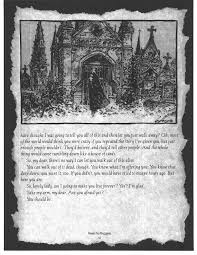 have thought I was going to tell you all of this and then let you just walk away? Ooh, most
of the world would think you were crazy if you repeated the story I've given you. But not
enough people wouldn't. They'd believe, and they'd tell other people. And the whole
thing would come tumbling down like a house of cards.
So, my dear, there's no way I can let you walk out of this alive.
You can walk out of it dead, though. You know what I'm offering you. You know that
deep down, you want it too. If you didn't, you would have
So, lovely lady, am I going to make you live forever? Yes? I'm glad.
Take my arm, my dear. Are you afraid yet?
You should be.